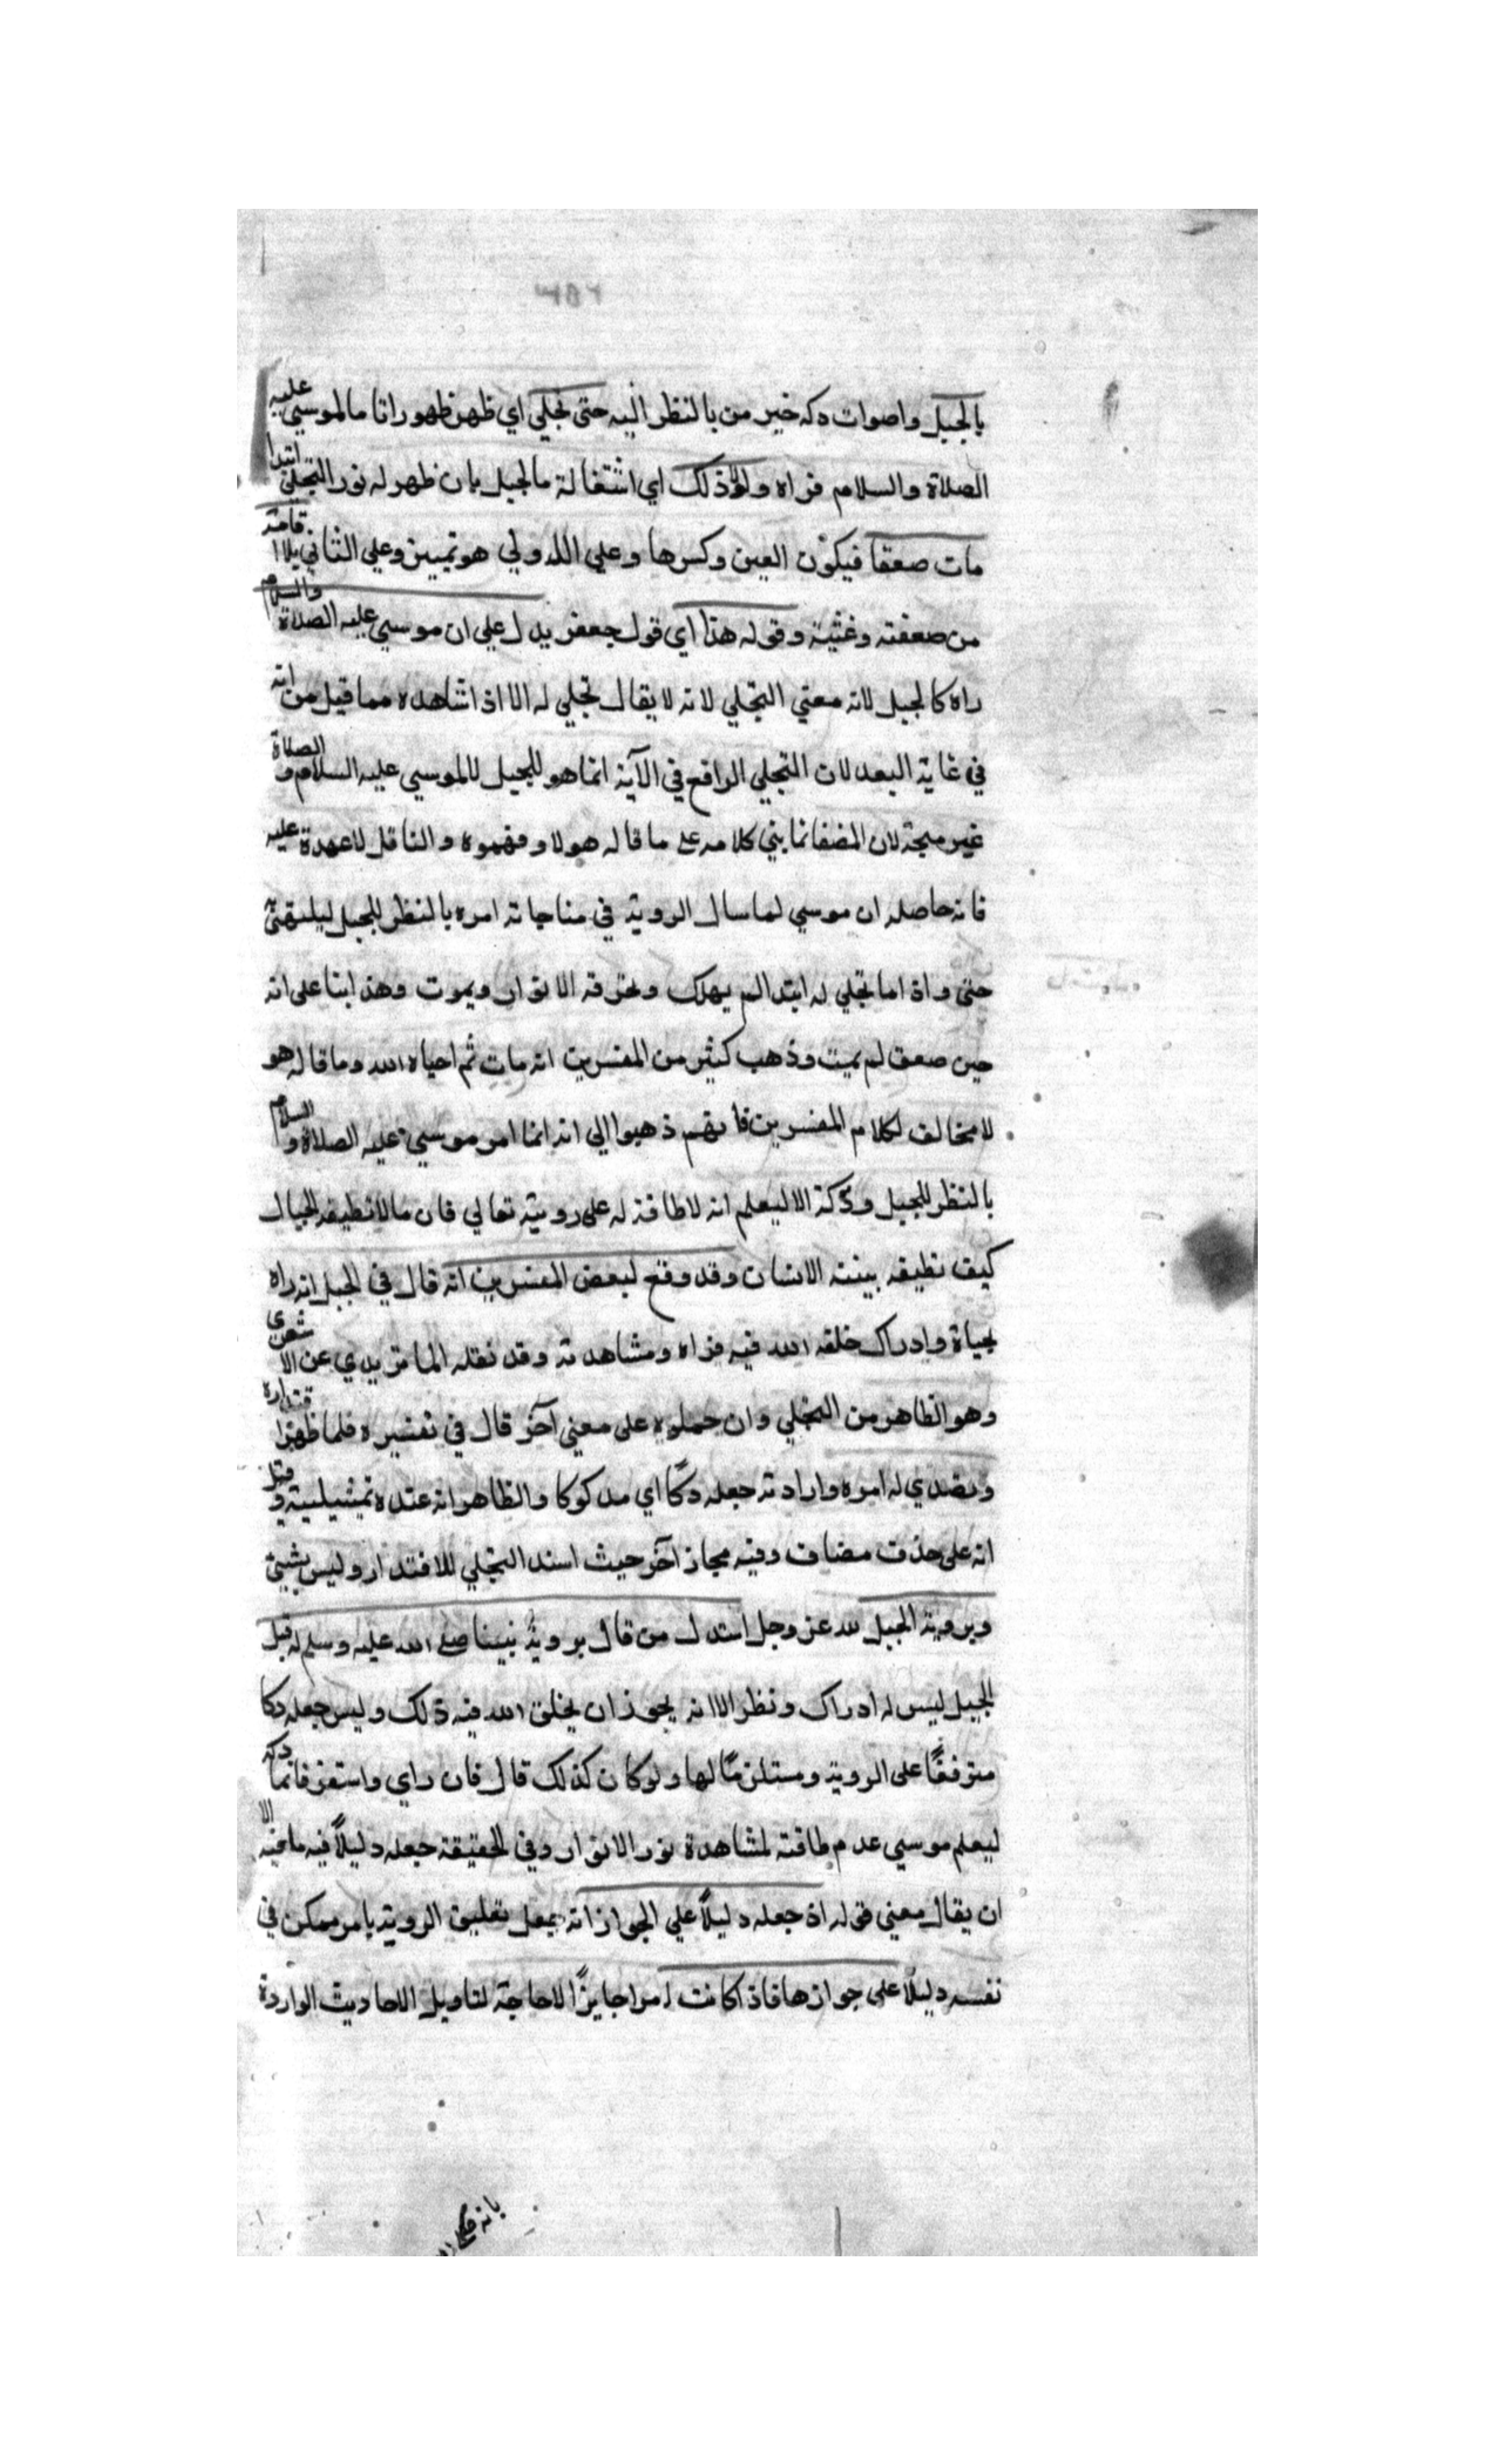 ٣٥٢
بالجبل واصوات دكه خير من بالنظر اليه حتى تجلي اي ظهر ظهورا تاما لموسي عليه
الصلاة والسلام فراه ولولا ذلك اي اشتغاله بالجبل بان ظهر له نور التجلي ابتدا
مات صعقا فيكون العين وكسرها وعلي الاولي هو تمييز وعلي الثاني بلا افاقة
من صعقته وغشيته وقوله هذا اي قول جعفر يدل علي ان موسي عليه الصلاة والسلام
راه كالجبل لانه معني التجلي لانه لا يقال تجلي له الا اذا شاهده مما قيل من انه
في غاية البعد لان التجلي الواقع في الآية انما هو للجبل لا لموسي عليه السلام والصلاة
غير متجه لان المضـ انما بني كلامه على ما قاله هولا وفهموه والناقل لا عهدة عليه
فانه حاصله ان موسي لما سال الروية في مناجاته امره بالنظر للجبل
حتى واذا ما تجلي له ابتدا لم يهلك وتحرقه الانوار ويموت وهذا بنا على انه
حين صعق لم يمت وذهب كثير من المفسرين انه مات ثم احياه الله وما قاله هو
لا مخالف لكلام المفسرين فانهم ذهبوا الي انه انما امر موسي عليه الصلاة والسلام
بالنظر للجبل ودكه الا ليعلم انه لا طاقة له على رويته تعالي فان ما لا تطيقه الجبال
كيف تطيقه بينة الانسان وقد وقع لبعض المفسرين انه قال في الجبل انه راه
بحياة وادراك خلقه الله فيه فراه ومشاهدته وقد نقله الماتريدي عن الاشعري
وهو الظاهر من التجلي وان حملوه على معني آخر قال في تفسيره فلما ظهر اقتداره
وتصدي له امره وارادته جعله دكًا اي مدكوكا والظاهر انه عنده تمثيلية وقيل
انه على حذف مضاف وفيه مجاز آخر حيث اسند التجلي للاقتدار وليس بشيئ
وبروية الجبل لله عز وجل استدل من قال بروية نبينا صلى الله عليه وسلم له قيل
الجبل ليس له ادراك ونظر الا انه يجوز ان يخلق الله فيه ذلك وليس جعله دكا
متوقفًا على الروية ومستلزمًا لها ولو كان كذلك قال فان راي واستقر فانما دكه
ليعلم موسي عدم طاقته لمشاهدة نور الانوار وفي الحقيقة جعله دليلًا فيه ما فيه الا
ان يقال معني قوله اذ جعله دليلًا علي الجواز انه يجعل تعليق الروية بامر ممكن في
نفسه دليلًا على جوازها فاذا كانت امرا جايزًا لا حاجة لتاويل الاحاديث الواردة